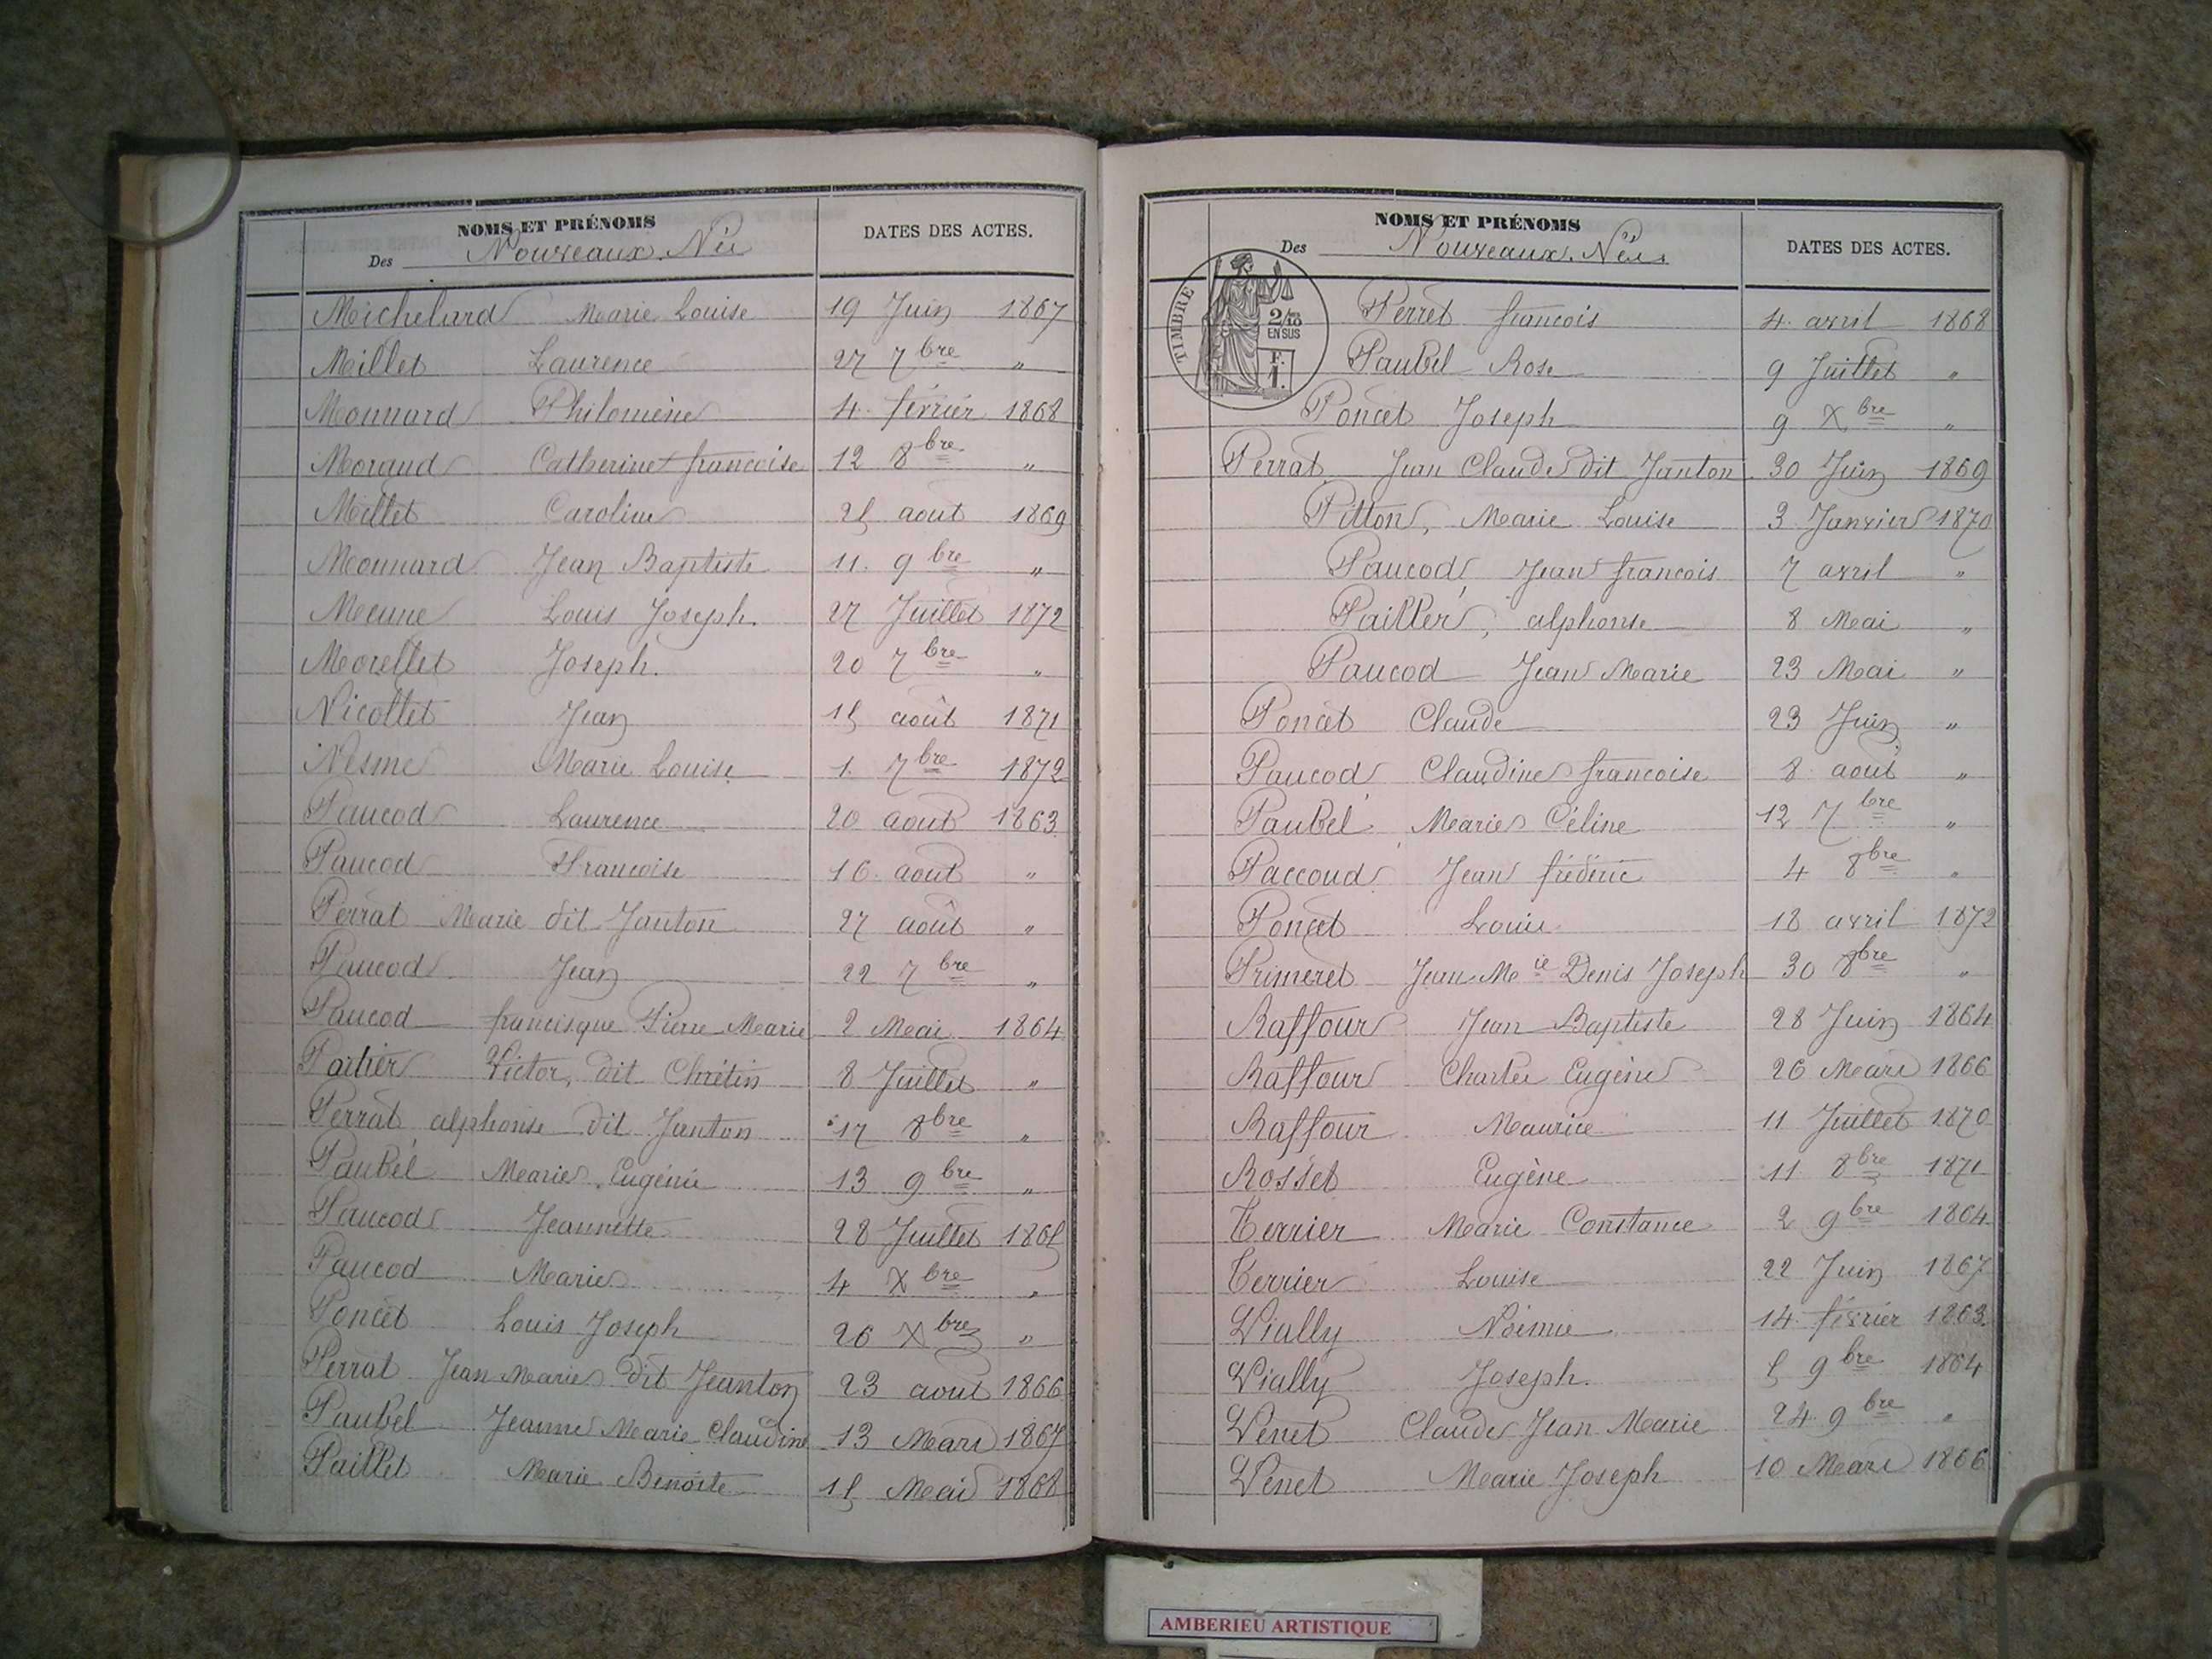 NOMS ET PRÉNOMS
Des Nouveaux-Nés
DATES DES ACTES.
Michelard Marie Louise 19 Juin 1867
Millet Laurence 27 7bre "
Monnard Philomène 4 février 1868
Moraud Catherine francoise 12 8bre "
Millet Caroline 25 aout 1869
Monnard Jean Baptiste 11. 9bre "
Meune Louis Joseph. 27 Juillet 1872
Morellet Joseph. 20 7bre "
Nicollet Jean 15 août 1871
Nesme Marie Louise 1. 7bre 1872
Paucod Laurence 20 aout 1863
Paucod Francoise 16 aout "
Perrat Marie dit Janton 27 août "
Paucod Jean 22 7bre "
Paucod francisque Pierre Marie 2 Mai 1864
Victor, dit Chrétin 8 Juillet "
Perrat alphonse dit Janton 17 8bre "
Paubel Marie Eugénie 13 9bre "
Paucod Jeannette 28 Juillet 1865
Paucod Marie 4 Xbre "
Poncet Louis Joseph 26 Xbre "
Perrat Jean Marie dit Jeanton 23 aout 1866
Paubel Jeanne Marie Claudine 13 Mars 1867
Paillet Marie Benoite 15 Mai 1868
NOMS ET PRÉNOMS
Des Nouveaux-Nés.
DATES DES ACTES.
TIMBRE
2/10
EN SUS
F.
1.
Perret francois 4 avril 1868
Paubel Rose 9 Juillet "
Poncet Joseph 9 Xbre "
Perrat Jean Claude dit Janton 30 Juin 1869
Pitton, Marie Louise 3 Janvier 1870
Paucod Jean francois 7 avril "
alphonse 8 Mai "
Paucod Jean Marie 23 Mai "
Poncet Claude 23 Juin "
Paucod Claudine francoise 8 aout "
Paubel Marie Céline 12 7bre "
Paccoud Jean fréderic 4 8bre "
Poncet Louis 18 avril 1872
Primeret Jean Mie Denis Joseph 30 8bre "
Raffour Jean Baptiste 28 Juin 1864
Raffour Charles Eugène 26 Mars 1866
Raffour Maurice 11 Juillet 1870
Rosset Eugène 11 8bre 1871
Terrier Marie Constance 2 9bre 1864
Terrier Louise 22 Juin 1867
Vially Noémie 14 février 1863
Vially Joseph. 5 9bre 1864
Venet Claude Jean Marie 24 9bre "
Venet Marie Joseph 10 Mars 1866
AMBERIEU ARTISTIQUE